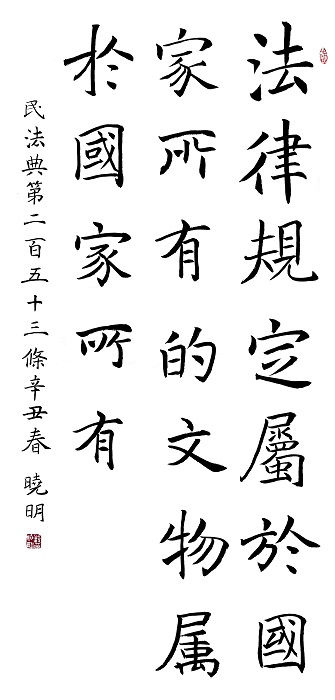 法律規定屬於國
家所有的文物属
於國家所有
民法典第二百五十三條辛丑春曉明